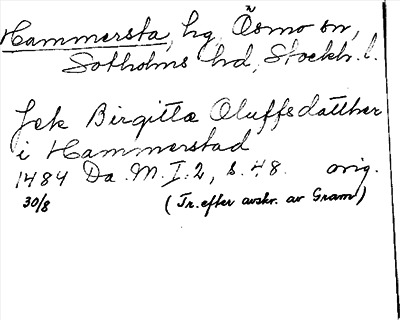 Hammersta, hg, Ösmo sn,
Sotholms hd, Stockh. l.
Jek Birgittæ Oluffsdatther
i Hammerstad
1484 Da. M. I:2, s. 48. orig.
30/8 (Tr. efter avskr. av Gram)